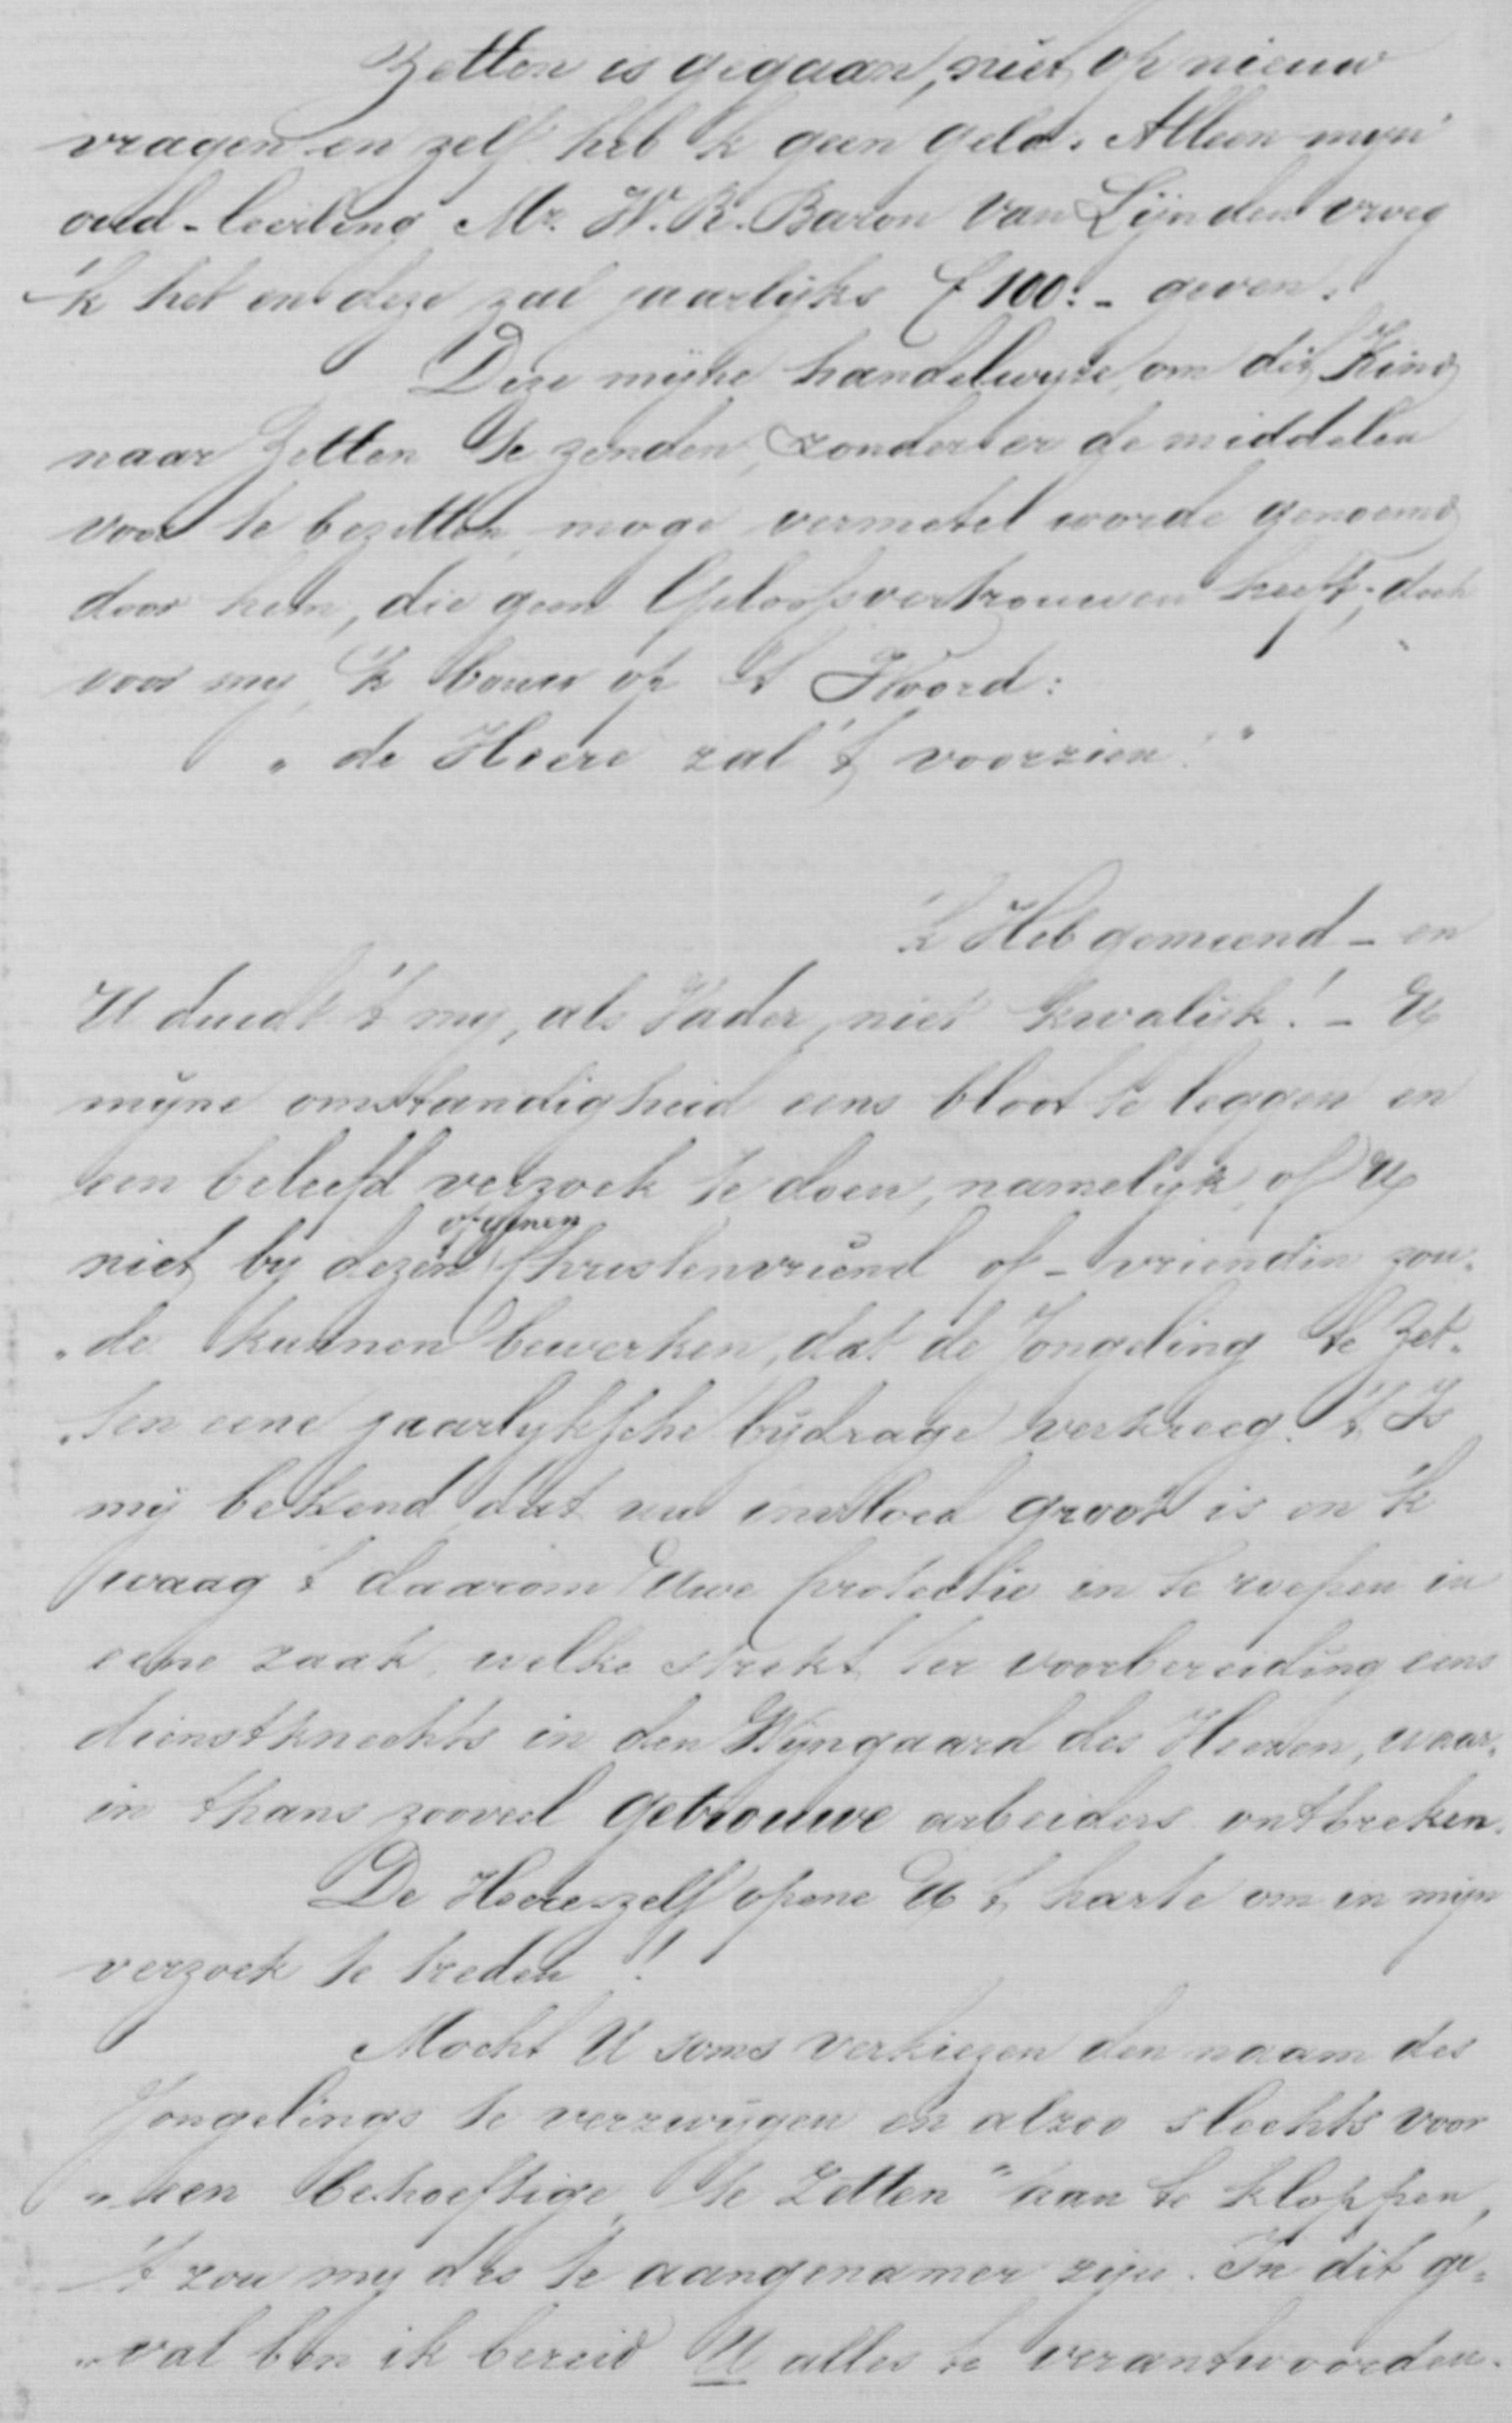 Zetten is gegaan, niet op nieuw
vragen en zelf heb 'k geen geld. Alleen mijn
oud-leerling Mr. W. R. Baron van Lijnden vroeg
'k het en deze zal jaarlijks f 100.- geven.
Deze mijne handelwijze, om dit Kind
naar Zetten te zenden, zonder er de middelen
voor te bezitten, moge vermetel worde genoemd
door hem, die geen Geloofsvertrouwen heeft; doch
voor mij, 'k bouw op 't Woord:
„de Heere zal 't voorzien."
'k Heb gemeend - en
U duidt 't mij, als Vader, niet kwalijk! - U
mijne omstandigheid eens bloot te leggen en
een beleefd verzoek te doen, namelijk, of U
niet bij dezen of genen Christenvriend of -vriendin zou„
„de kunnen bewerken, dat de Jongeling te Zet„
„ten eene jaarlijksche bijdrage verkreeg. 't Is
mij bekend dat uw invloed groot is en 'k
waag 't daarom Uwe protectie in te roepen in
eene zaak, welke strekt ter voorbereiding eens
dienstknechts in den Wijngaard des Heeren, waar„
in thans zooveel getrouwe arbeiders ontbreken.
De Heere-zelf opene U 't harte om in mijn
verzoek te treden!
Mocht U soms verkiezen den naam des
Jongelings te verzwijgen en alzoo slechts voor
„een behoeftige te Zetten" aan te kloppen,
't zou mij des te aangenamer zijn. In dit ge„
„val ben ik bereid U alles te verantwoorden.